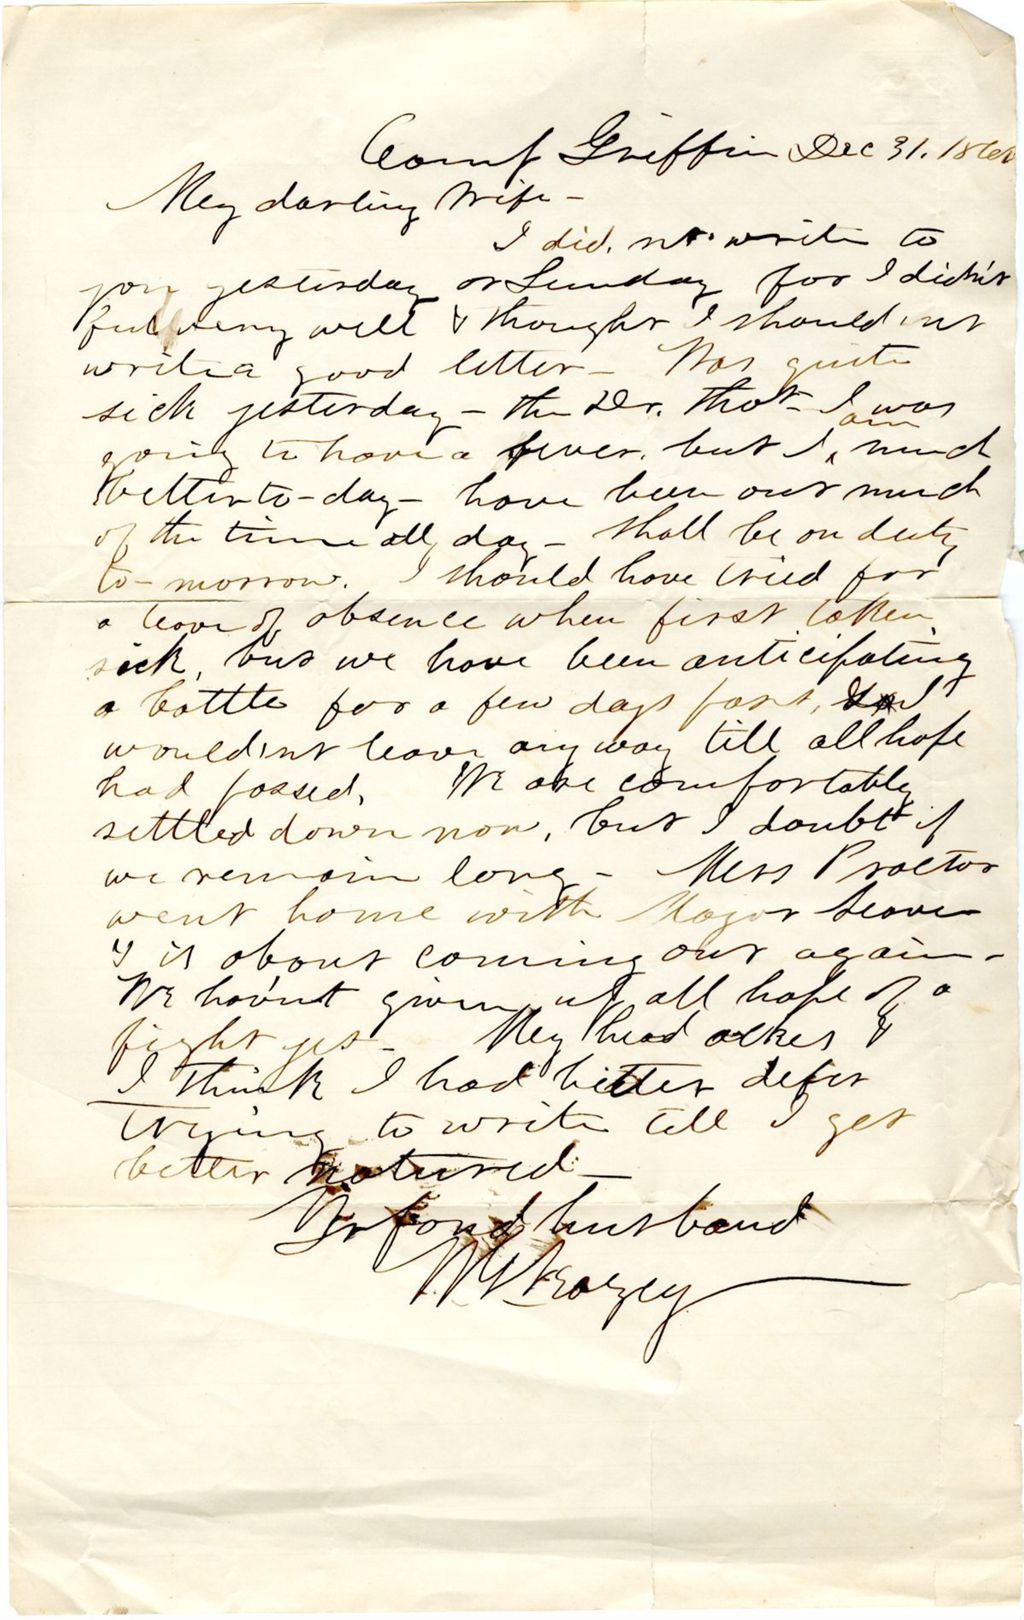 Camp Griffin Dec 31. 1861
My darling Wife -
I did. not write to
you yesterday or Sunday for I didn't
feel very well & thought I should not
write a good letter - Was quite
sick yesterday - the Dr. thot I was
going to have a fever. but I am much
better to-day - have been out much
of the time all day - shall be on duty
to-morrow. I should have tried for
a leave of absence when first taken
sick, but we have been anticipating
a battle for a few days past, & I
wouldn't leave any way till all hope
had passed. We are comfortably
settled down now, but I doubt if
we remain long - Mess Proctor
went home with Major
& is about coming out again -
We hav'nt given up all hope of a
fight yet - My head aches &
I think I had better defer
trying to write till I get
better natured -
Yr fond husband
W Veazey